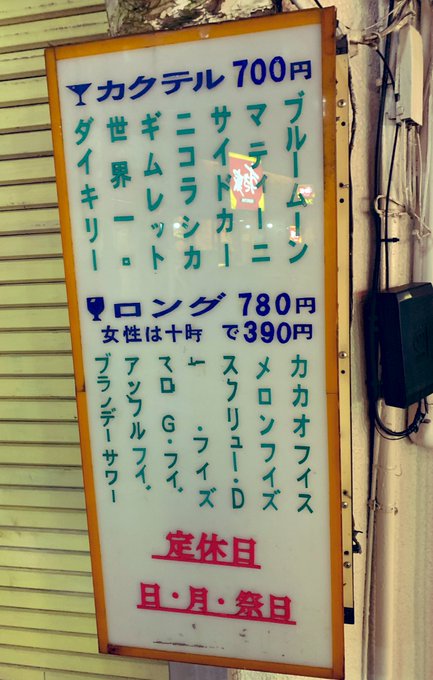 カクテル 700円
ブルームーン
マティーニ
サイドカー
ニコラシカ
ギムレット
世界一。
ダイキリー
ロング 780円
女性は十時 で390円
カカオフィス
メロンフィズ
スクリュー・D
ー ・フィズ
マロ G・フィ
アップルフィ
ブランデーサワー
定休日
日・月・祭日